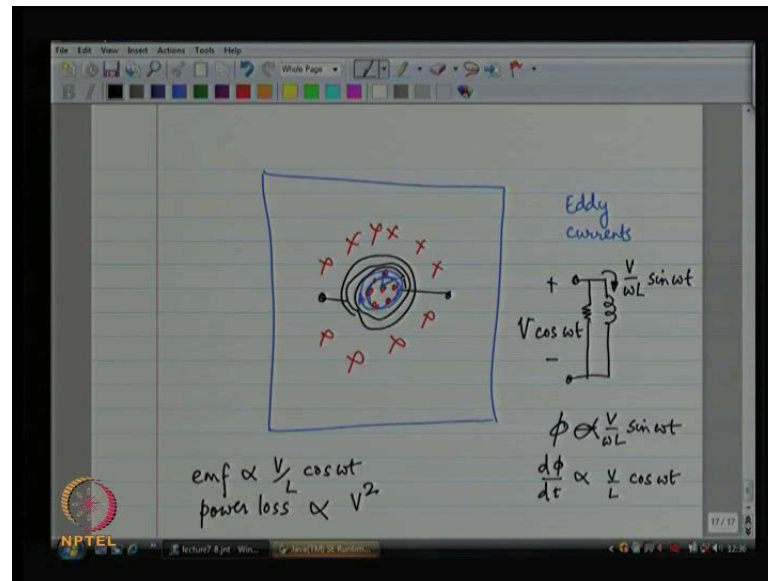 File Edit View Insert Actions Tools Help
Whole Page
B I
Eddy
currents
+
V/ωL sin ωt
V cos ωt
−
ϕ ∝ V/ωL sin ωt
dϕ/dt ∝ V/L cos ωt
emf ∝ V/L cos ωt
power loss ∝ V²
17 / 17
NPTEL
lecture7-8.jnt - Win...
Java(TM) SE Runtim...
12:30